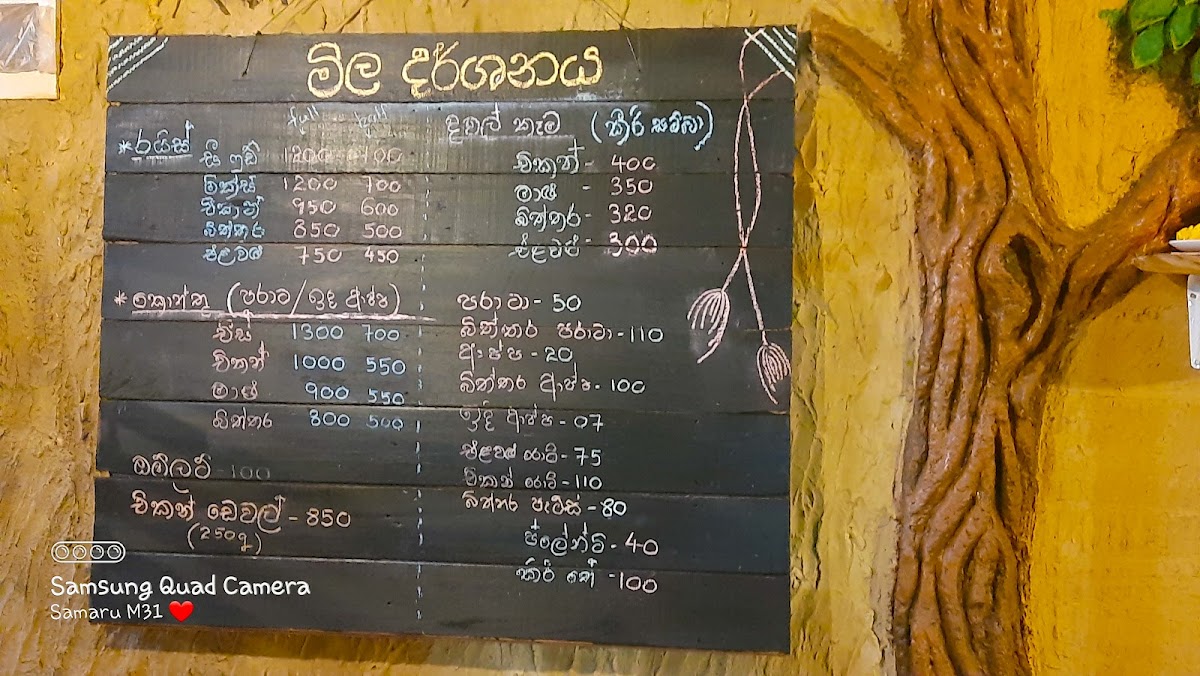 මිල දර්ශනය
full half
* රයිස්
සී ෆුඩ් 1200 700
මික්ස් 1200 700
චිකන් 950 600
බිත්තර 850 500
එළවළු 750 450
* කොත්තු (පරාටා/ඉඳි ආප්ප)
චීස් 1300 700
චිකන් 1000 550
මාළු 900 550
බිත්තර 800 500
ඔම්ලට් - 100
චිකන් ඩෙවල් - 850
(250g)
දවල් කෑම (කීරි සම්බා)
චිකන් - 400
මාළු - 350
බිත්තර - 320
එළවළු - 300
පරාටා - 50
බිත්තර පරාටා - 110
ආප්ප - 20
බිත්තර ආප්ප - 100
ඉඳි ආප්ප - 07
එළවළු රොටි - 75
චිකන් රොටි - 110
බිත්තර පැටිස් - 80
ප්ලේන්ටි - 40
කිරි තේ - 100
Samsung Quad Camera
Samaru M31 ❤️